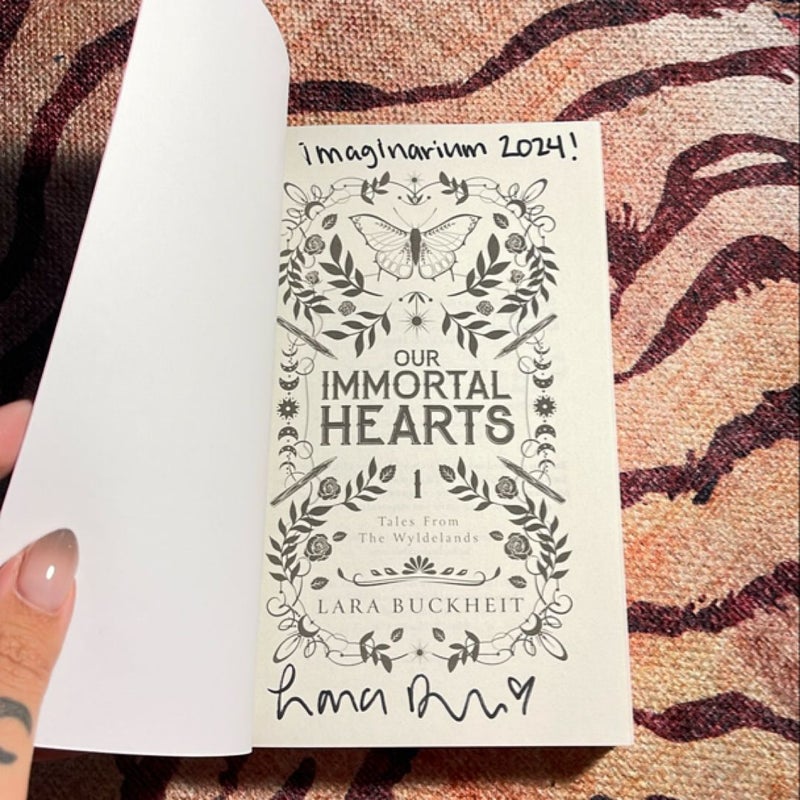 imaginarium 2024!
OUR
IMMORTAL
HEARTS
1
Tales From
The Wyldelands
LARA BUCKHEIT
Lara